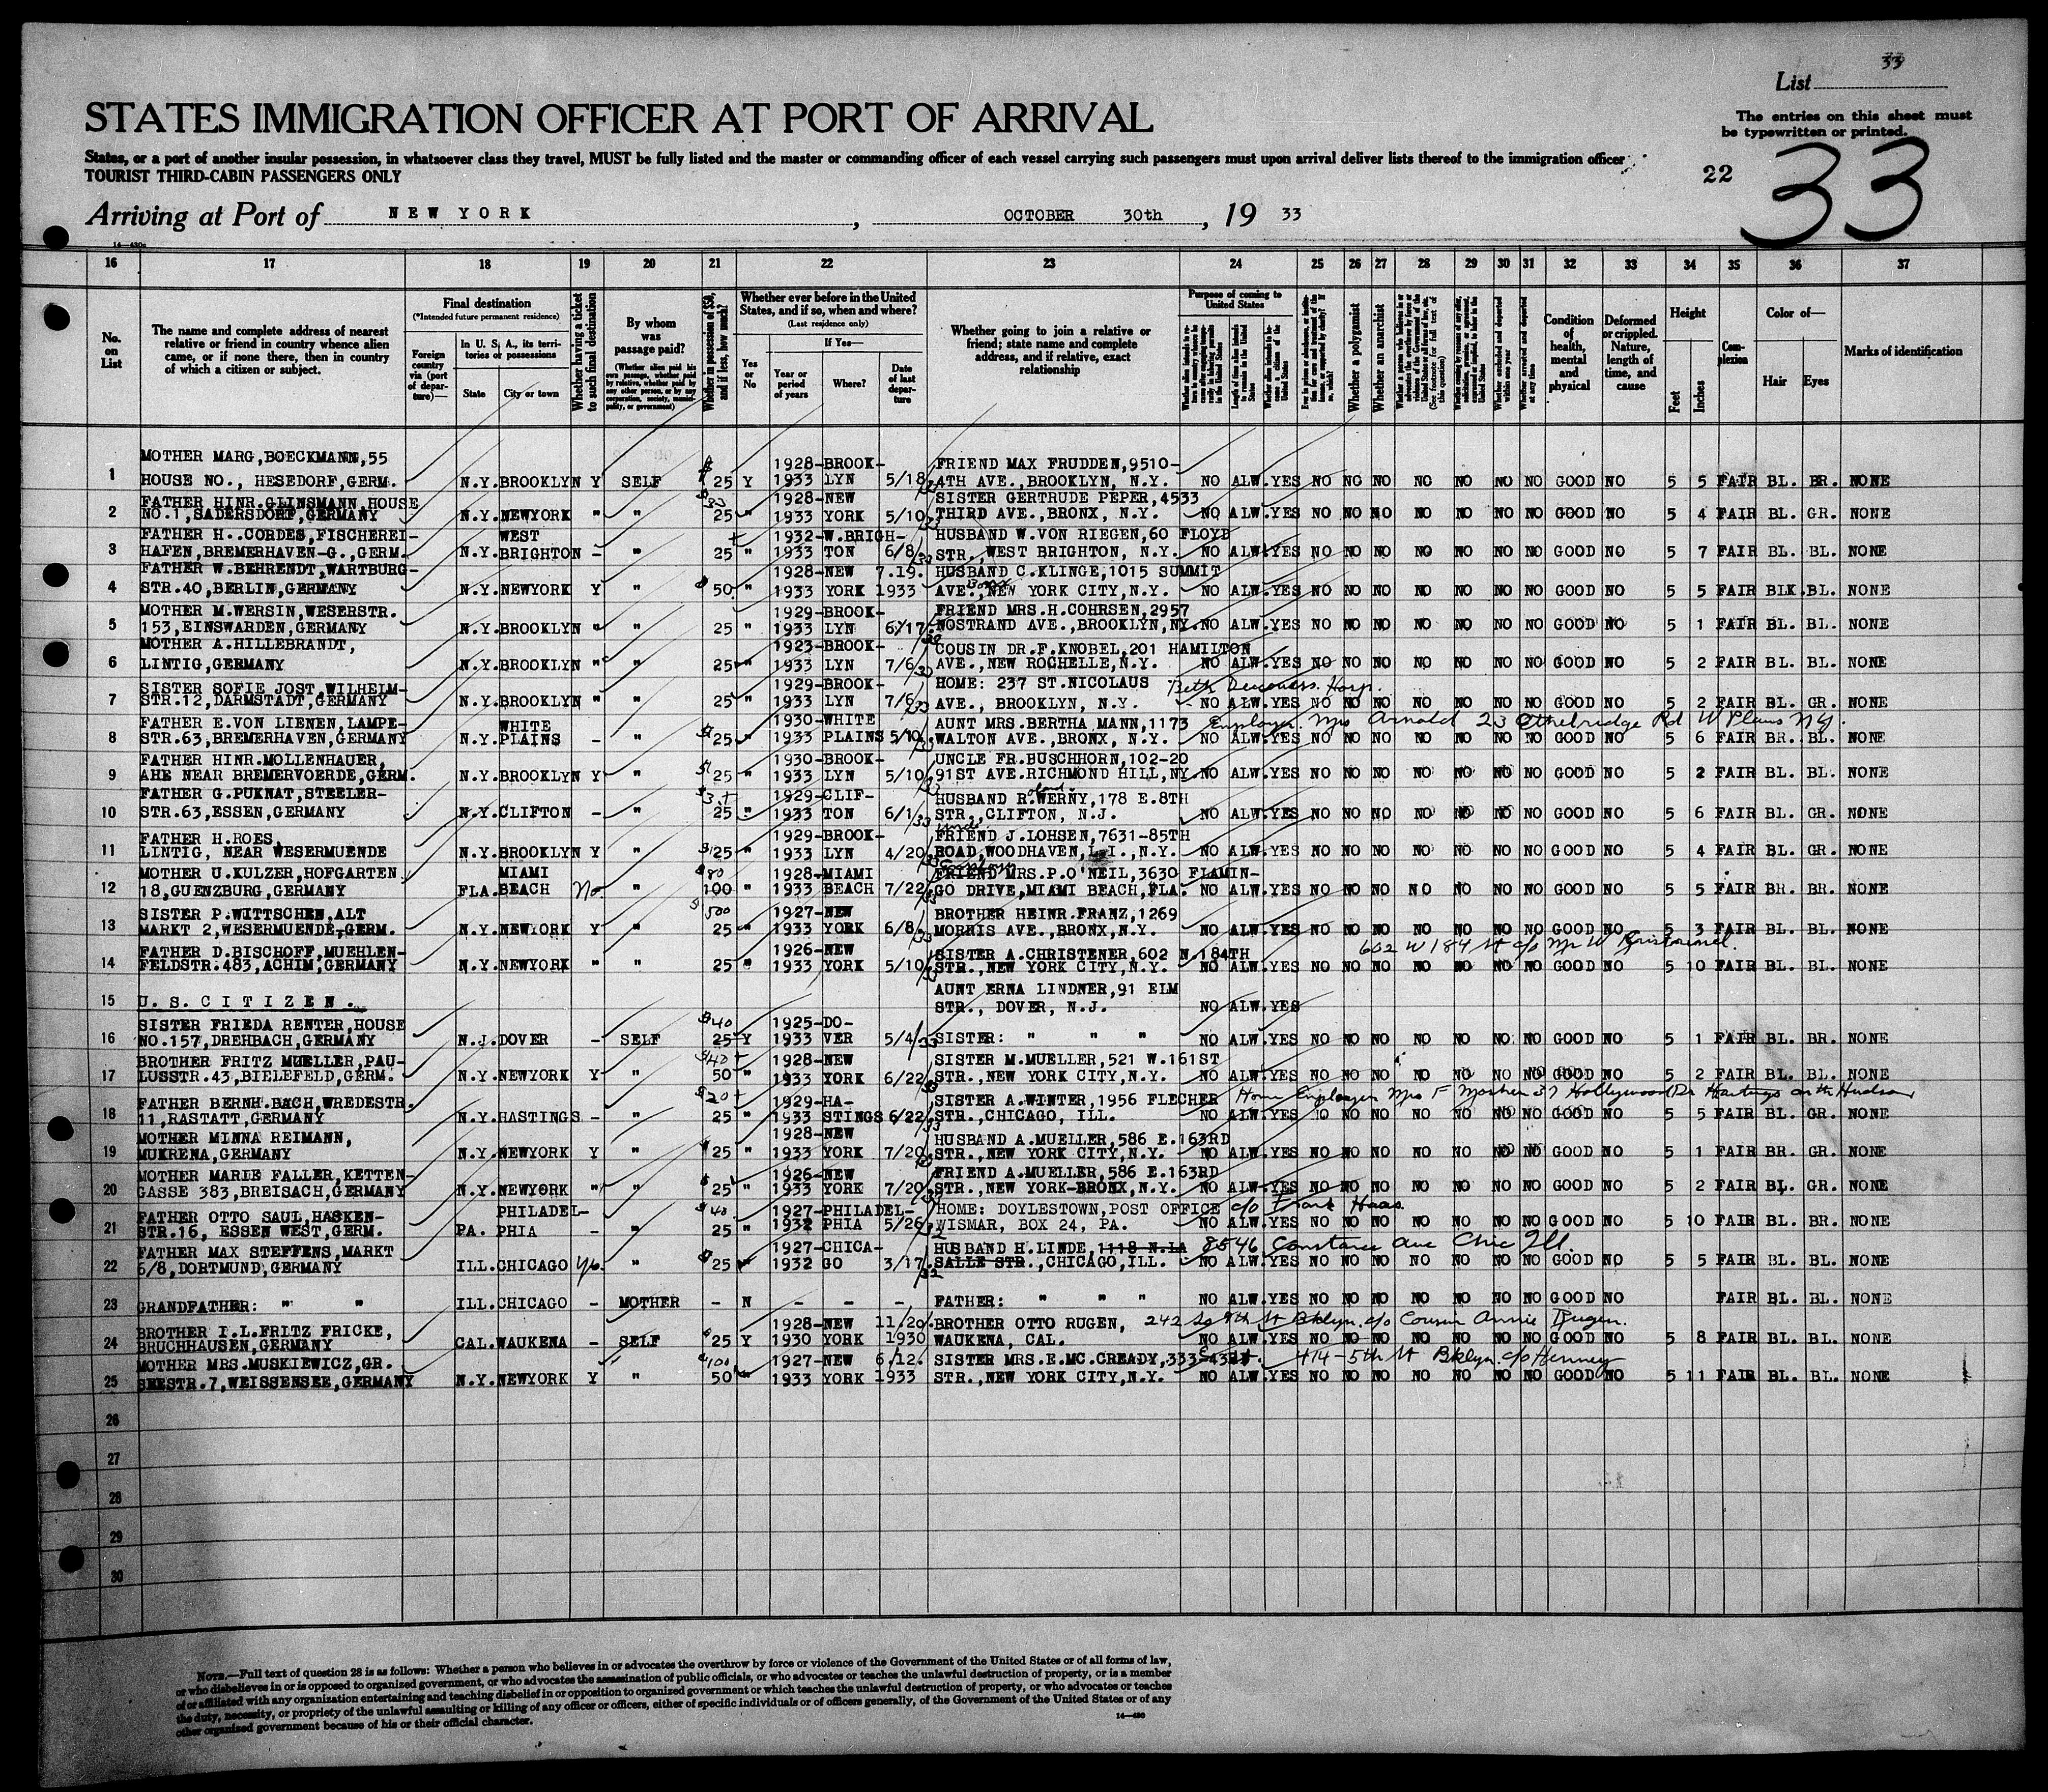 33
List
STATES IMMIGRATION OFFICER AT PORT OF ARRIVAL
The entries on this sheet must
be typewritten or printed.
States, or a port of another insular possession, in whatsoever class they travel, MUST be fully listed and the master or commanding officer of each vessel carrying such passengers must upon arrival deliver lists thereof to the immigration officer
TOURIST THIRD-CABIN PASSENGERS ONLY
22 33
Arriving at Port of NEW YORK, OCTOBER 30th, 19 33
14—430a
16 17 18 19 20 21 22 23 24 25 26 27 28 29 30 31 32 33 34 35 36 37
No. on List
The name and complete address of nearest relative or friend in country whence alien came, or if none there, then in country of which a citizen or subject.
Final destination
(*Intended future permanent residence)
Foreign country via (port of departure)—
In U. S. A., its territories or possessions
State
City or town
Whether having a ticket to such final destination
By whom was passage paid?
(Whether alien paid his own passage, whether paid by relative, whether paid by any other person, or by any corporation, society, municipality, or government)
Whether in possession of $50, and if less, how much?
Whether ever before in the United States, and if so, when and where?
(Last residence only)
Yes or No
If Yes—
Year or period of years
Where?
Date of last departure
Whether going to join a relative or friend; state name and complete address, and if relative, exact relationship
Purpose of coming to United States
Length of time alien intends to remain in the United States
Whether a polygamist
Whether an anarchist
(See footnote for full text of this question)
Whether arrested and deported at any time
Condition of health, mental and physical
Deformed or crippled. Nature, length of time, and cause
Height
Feet
Inches
Complexion
Color of—
Hair
Eyes
Marks of identification
MOTHER MARG,BOECKMANN,55 1928-BROOK- FRIEND MAX FRUDDEN,9510-
1 HOUSE NO., HESEDORF,GERM. N.Y. BROOKLYN Y SELF 25 Y 1933 LYN 5/18 4TH AVE.,BROOKLYN, N.Y. NO ALW. YES NO NO NO NO NO NO NO GOOD NO 5 5 FAIR BL. BR. NONE
FATHER HINR.GLINSMANN,HOUSE 1928-NEW SISTER GERTRUDE PEPER,4533
2 NO.1,SADERSDORF,GERMANY N.Y. NEWYORK " " 25 " 1933 YORK 5/10 THIRD AVE.,BRONX, N.Y. NO ALW. YES NO NO NO NO NO NO NO GOOD NO 5 4 FAIR BL. GR. NONE
FATHER H..CORDES,FISCHEREI- WEST 1932-W.BRIGH- HUSBAND W.VON RIEGEN,60 FLOYD
3 HAFEN,BREMERHAVEN-G.,GERM. N.Y. BRIGHTON - " 25 " 1933 TON 6/8 STR.,WEST BRIGHTON, N.Y. NO ALW. YES NO NO NO NO NO NO NO GOOD NO 5 7 FAIR BL. BL. NONE
FATHER W.BEHRENDT,WARTBURG- 1928-NEW 7.19. HUSBAND C.KLINGE,1015 SUMMIT
4 STR.40,BERLIN,GERMANY N.Y. NEWYORK Y " 50 " 1933 YORK 1933 AVE.,NEW YORK CITY,N.Y. NO ALW. YES NO NO NO NO NO NO NO GOOD NO 5 5 FAIR BLK. BL. NONE
MOTHER M.WERSIN,WESERSTR. 1929-BROOK- FRIEND MRS.H.COHRSEN,2957
5 153,EINSWARDEN,GERMANY N.Y. BROOKLYN " " 25 " 1933 LYN 6/17 NOSTRAND AVE.,BROOKLYN,NY. NO ALW. YES NO NO NO NO NO NO NO GOOD NO 5 1 FAIR BL. BL. NONE
MOTHER A.HILLEBRANDT, 1923-BROOK- COUSIN DR.F.KNOBEL,201 HAMIITON
6 LINTIG,GERMANY N.Y. BROOKLYN " " 25 " 1933 LYN 7/6 AVE.,NEW ROCHELLE,N.Y. NO ALW. YES NO NO NO NO NO NO NO GOOD NO 5 2 FAIR BL. BL. NONE
SISTER SOFIE JOST,WILHELM- 1929-BROOK- HOME: 237 ST.NICOLAUS
7 STR.12,DARMSTADT,GERMANY N.Y. BROOKLYN " " 25 " 1933 LYN 7/6 AVE., BROOKLYN, N.Y. NO ALW. YES NO NO NO NO NO NO NO GOOD NO 5 2 FAIR BL. GR. NONE
FATHER E.VON LIENEN,LAMPE- WHITE 1930-WHITE AUNT MRS.BERTHA MANN,1173 Employer Mrs Arnold 23 Ethelridge Rd W Plains N.Y.
8 STR.63,BREMERHAVEN,GERMANY N.Y. PLAINS - " 25 " 1933 PLAINS 5/10 WALTON AVE.,BRONX, N.Y. NO ALW. YES NO NO NO NO NO NO NO GOOD NO 5 6 FAIR BR. BL. NONE
FATHER HINR.MOLLENHAUER, 1930-BROOK- UNCLE FR.BUSCHHORN,102-20
9 AHE NEAR BREMERVOERDE,GERM. N.Y. BROOKLYN Y " 25 " 1933 LYN 5/10 91ST AVE.RICHMOND HILL,NY NO ALW. YES NO NO NO NO NO NO NO GOOD NO 5 2 FAIR BL. BL. NONE
FATHER G.PUKNAT,STEELER- 1929-CLIF- HUSBAND R.WERNY,178 E.8TH
10 STR.63,ESSEN,GERMANY N.Y. CLIFTON - " 25 " 1933 TON 6/1 STR.,CLIFTON, N.J. NO ALW. YES NO NO NO NO NO NO NO GOOD NO 5 6 FAIR BL. GR. NONE
FATHER H.ROES, 1929-BROOK- FRIEND J.LOHSEN,7631-85TH
11 LINTIG, NEAR WESERMUENDE N.Y. BROOKLYN Y " 25 " 1933 LYN 4/20 ROAD,WOODHAVEN,L.I.,N.Y. NO ALW. YES NO NO NO NO NO NO NO GOOD NO 5 4 FAIR BL. GR. NONE
MOTHER U.KULZER,HOFGARTEN MIAMI 80 1928-MIAMI FRIEND MRS.P.O'NEIL,3630 FLAMIN-
12 18,GUENZBURG,GERMANY FLA. BEACH No " 100 " 1933 BEACH 7/22 GO DRIVE,MIAMI BEACH,FLA. NO ALW. YES NO NO NO NO NO NO NO GOOD NO 5 5 FAIR BR. BR. NONE
SISTER P.WITTSCHEN,ALT 500 1927-NEW BROTHER HEINR.FRANZ,1269
13 MARKT 2,WESERMUENDE-GERM. N.Y. NEWYORK Y " 25 " 1933 YORK 6/8 MORRIS AVE.,BRONX,N.Y. NO ALW. YES NO NO NO NO NO NO NO GOOD NO 5 3 FAIR BL. BL. NONE
FATHER D.BISCHOFF,MUEHLEN- 1926-NEW SISTER A.CHRISTENER,602 N.184TH 602 W 184 St c/o Mr W
14 FELDSTR.483,ACHIM,GERMANY N.Y. NEWYORK " " 25 " 1933 YORK 5/10 STR.,NEW YORK CITY,N.Y. NO ALW. YES NO NO NO NO NO NO NO GOOD NO 5 10 FAIR BL. BL. NONE
AUNT ERNA LINDNER,91 ELM
15 U.S. CITIZEN. STR., DOVER, N.J. NO ALW. YES
SISTER FRIEDA RENTER,HOUSE $40 1925-DO-
16 NO.157,DREHBACH,GERMANY N.J. DOVER - SELF 25 Y 1933 VER 5/4 SISTER: " " " NO ALW. YES NO NO NO NO NO NO NO GOOD NO 5 1 FAIR BL. BR. NONE
BROTHER FRITZ MUELLER,PAU- $40+ 1928-NEW SISTER M.MUELLER,521 W.161ST
17 LUSSTR.43,BIELEFELD,GERM. N.Y. NEWYORK Y " 50 " 1933 YORK 6/22 STR.,NEW YORK CITY,N.Y. NO ALW. YES NO NO NO NO NO NO NO GOOD NO 5 2 FAIR BL. BL. NONE
FATHER BERNH.BACH,WREDESTR. $20+ 1929-HA- SISTER A.WINTER,1956 FLECHER Home Employer Mrs F Mosher 37 Hollywood Dr Hastings on the Hudson
18 11,RASTATT,GERMANY N.Y. HASTINGS - " 25 " 1933 STINGS 6/22 STR.,CHICAGO, ILL. NO ALW. YES NO NO NO NO NO NO NO GOOD NO 5 5 FAIR BL. GR. NONE
MOTHER MINNA REIMANN, 1928-NEW HUSBAND A.MUELLER,586 E.163RD
19 MUKRENA,GERMANY N.Y. NEWYORK Y " 25 " 1933 YORK 7/20 STR.,NEW YORK CITY,N.Y. NO ALW. YES NO NO NO NO NO NO NO GOOD NO 5 1 FAIR BR. GR. NONE
MOTHER MARIE FALLER,KETTEN- 1926-NEW FRIEND A.MUELLER,586 E.163RD
20 GASSE 383,BREISACH,GERMANY N.Y. NEWYORK " " 25 " 1933 YORK 7/20 STR.,NEW YORK-BRONX,N.Y. NO ALW. YES NO NO NO NO NO NO NO GOOD NO 5 2 FAIR BL. GR. NONE
FATHER OTTO SAUL,HASKEN- PHILADEL- 40 1927-PHILADEL- HOME: DOYLESTOWN,POST OFFICE c/o Frank Haas
21 STR.16, ESSEN WEST,GERM. PA. PHIA - " 25 " 1932 PHIA 5/26 WISMAR, BOX 24, PA. NO ALW. YES NO NO NO NO NO NO NO GOOD NO 5 10 FAIR BL. BR. NONE
FATHER MAX STEFFENS,MARKT 1927-CHICA- HUSBAND H.LINDE,1118 N.LA 8546 Constance Ave Chic Ill.
22 6/8,DORTMUND,GERMANY ILL. CHICAGO " 25 " 1932 GO 3/17 SALLE STR.,CHICAGO,ILL. NO ALW. YES NO NO NO NO NO NO NO GOOD NO 5 5 FAIR BL. BL. NONE
23 GRANDFATHER: " " ILL. CHICAGO - MOTHER - N - - - FATHER: " " " NO ALW. YES NO NO NO NO NO NO NO GOOD NO FAIR BL. BL. NONE
BROTHER I.L.FRITZ FRICKE, 1928-NEW 11/20. BROTHER OTTO RUGEN, 242 So 9th St Bklyn. c/o Cousin Annie Rugen.
24 BRUCHHAUSEN,GERMANY CAL. WAUKENA - SELF 25 Y 1930 YORK 1930 WAUKENA, CAL. NO ALW. YES NO NO NO NO NO NO NO GOOD NO 5 8 FAIR BL. BL. NONE
MOTHER MRS.MUSKIEWICZ,GR. 100 1927-NEW 6.12. SISTER MRS.E.MC.CREADY,333- 414-5th St Bklyn c/o Henney
25 SEESTR.7,WEISSENSEE,GERMANY N.Y. NEWYORK Y " 50 " 1933 YORK 1933 STR.,NEW YORK CITY,N.Y. NO ALW. YES NO NO NO NO NO NO NO GOOD NO 5 11 FAIR BL. BL. NONE
26
27
28
29
30
NOTE.—Full text of question 28 is as follows: Whether a person who believes in or advocates the overthrow by force or violence of the Government of the United States or of all forms of law,
or who disbelieves in or is opposed to organized government, or who advocates the assassination of public officials, or who advocates or teaches the unlawful destruction of property, or is a member
of or affiliated with any organization entertaining and teaching disbelief in or opposition to organized government or which teaches the unlawful destruction of property, or who advocates or teaches
the duty, necessity, or propriety of the unlawful assaulting or killing of any officer or officers, either of specific individuals or of officers generally, of the Government of the United States or of any
other organized government because of his or their official character.
14—430